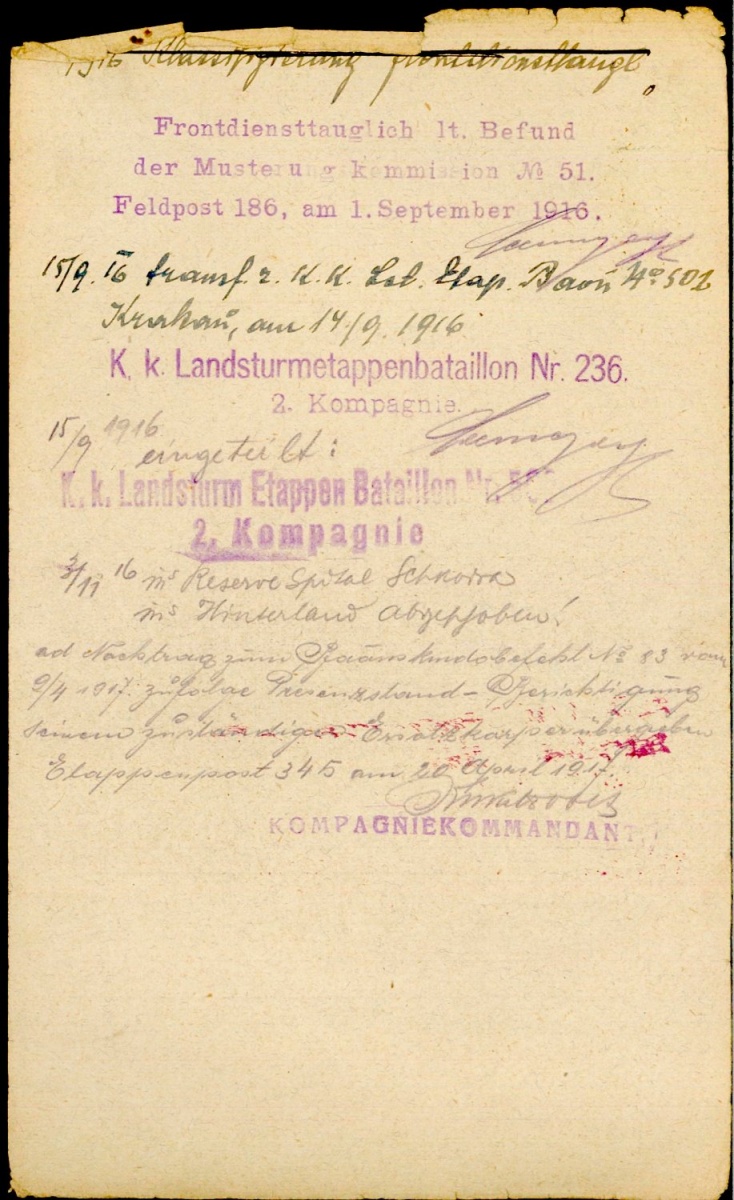 1916 Klassifizierung frontdiensttaugl
Frontdiensttauglich lt. Befund
der Musterungskommission № 51.
Feldpost 186, am 1. September 1916.
15/9. 16 transf. z. K. K. Lst. Etap. Baon No 502
Krakau, am 14/9. 1916
K. k. Landsturmetappenbataillon Nr. 236.
2. Kompagnie.
15/9 1916 eingeteilt:
K. k. Landsturm Etappen Bataillon Nr.
2. Kompagnie
3/11 16 ins Reserve Spital
ins Hinterland abgeschoben!
ad Nachtrag zum No 83 vom
2/4 1917. zufolge Presenzstand-Berichtigung
seinem zuständigen Ersatzkörper übergeben
Etappenpost 345 am 20 April 1917.
KOMPAGNIEKOMMANDANT.